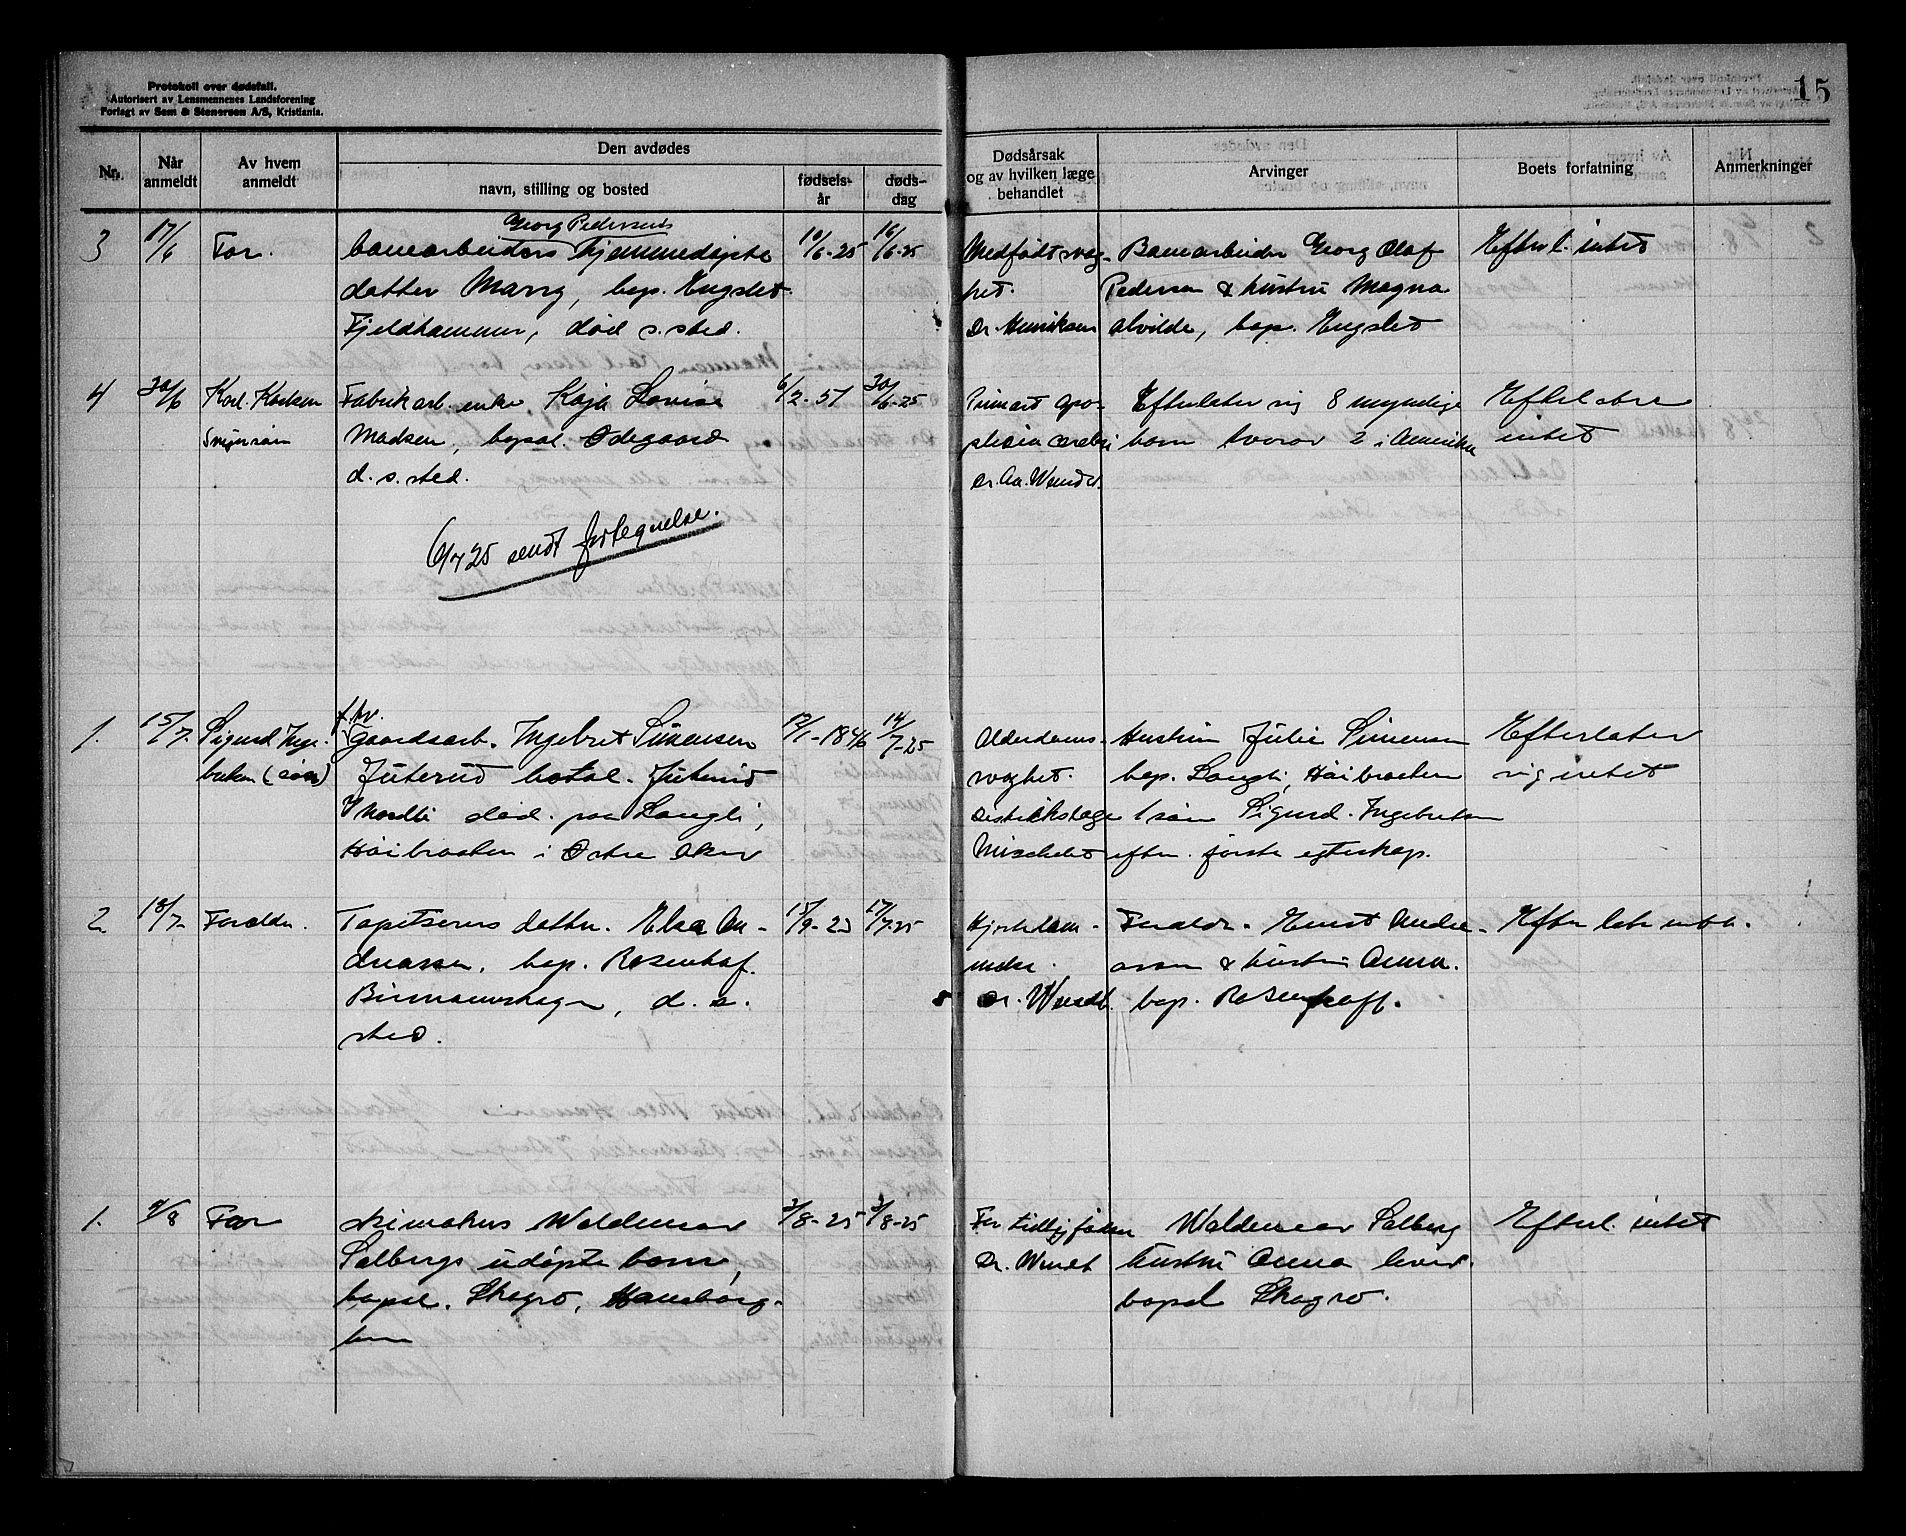 Protokoll over dødsfall.
Autorisert av Lensmennenes Landsforening
Forlagt av Sem & Stenersen A/S, Kristiania.
15
Nr.
Når anmeldt
Av hvem anmeldt
Den avdødes
navn, stilling og bosted
fødsels-år
døds-dag
Dødsårsak
og av hvilken læge
behandlet
Arvinger
Boets forfatning
Anmerkninger
3 17/6 Far.
Georg Pedersens
banearbeiders hjemmedøpte
datter Marry, bop. Engslet
Fjeldhammer, død s. sted.
10/6-25 16/6-25
Medfødt svag-
het.
Dr. Henriksen
Banearbeider Georg Olaf
Pedersen & hustru Magna
Alvilde, bop. Engslet
Efterl. intet
4 30/6 Karl Karlsen
Svigersøn
Fabrikarb. enke Kaja Lovise
Madsen, bopal. Ødegaard
d. s. sted.
6/2-51 30/6-25
Primært apo-
plexia cerebri
Dr. Aa. Wendt.
Efterlater sig 8 myndige
barn hvorav 2 i Amerika
Efterlatere
intet
6/7 25 sendt fortegnelse.
1. 15/7. Sigurd Inge-
bretsen (søn)
f.hv.
gaardsarb. Ingebret Simensen
Juterud bopal. Juterud
død paa Langli,
Høibraaten i Østre Aker
12/1-1846 14/7-25
Alderdoms-
svaghet.
Distriktslæge
Mischelet
Hustru Julie Simensen
bop. Langli, Høibraaten
1 søn Sigurd Ingebretsen
efter første egteskap.
Efterlater
sig intet
2. 18/7- Foreldr.
Tapetserers datter Elsa An-
dreassen, bop. Rosenhof.
d. s.
sted.
15/9-23 17/7-25
Hjertelam-
melse.
Dr. Wendt.
Foreldr. Ernst Andre-
asen & hustru Anna.
bop. Rosenhoff.
Efterlater intet.
1. 4/8 Far
Waldemar
Salbergs udøpte barn,
bopal. Skogro, Haneborg-
3/8-25 3/8-25
For tidlig født
Dr. Wendt
Waldemar Salberg
hustru Anna
bopal Skogro.
Efterl. intet